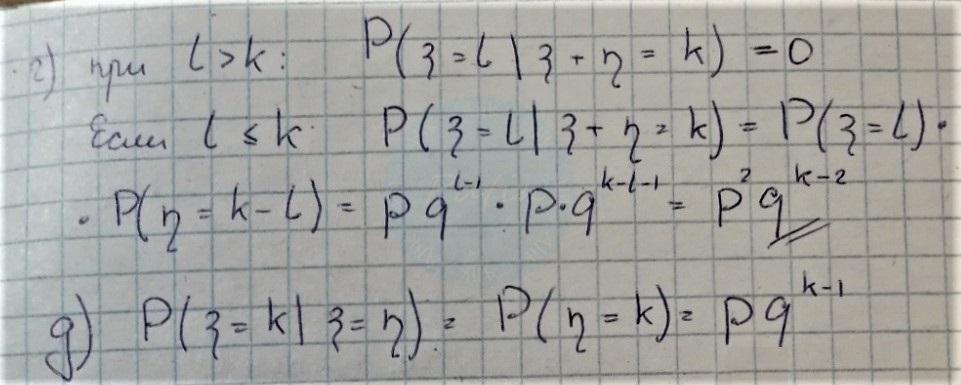 г) при l > k: P(ξ = l | ξ + η = k) = 0
Если l ≤ k: P(ξ = l | ξ + η = k) = P(ξ = l) ·
· P(η = k - l) = p q^{l-1} · p · q^{k-l-1} = p^2 q^{k-2}
д) P(ξ = k | ξ = η) = P(η = k) = p q^{k-1}